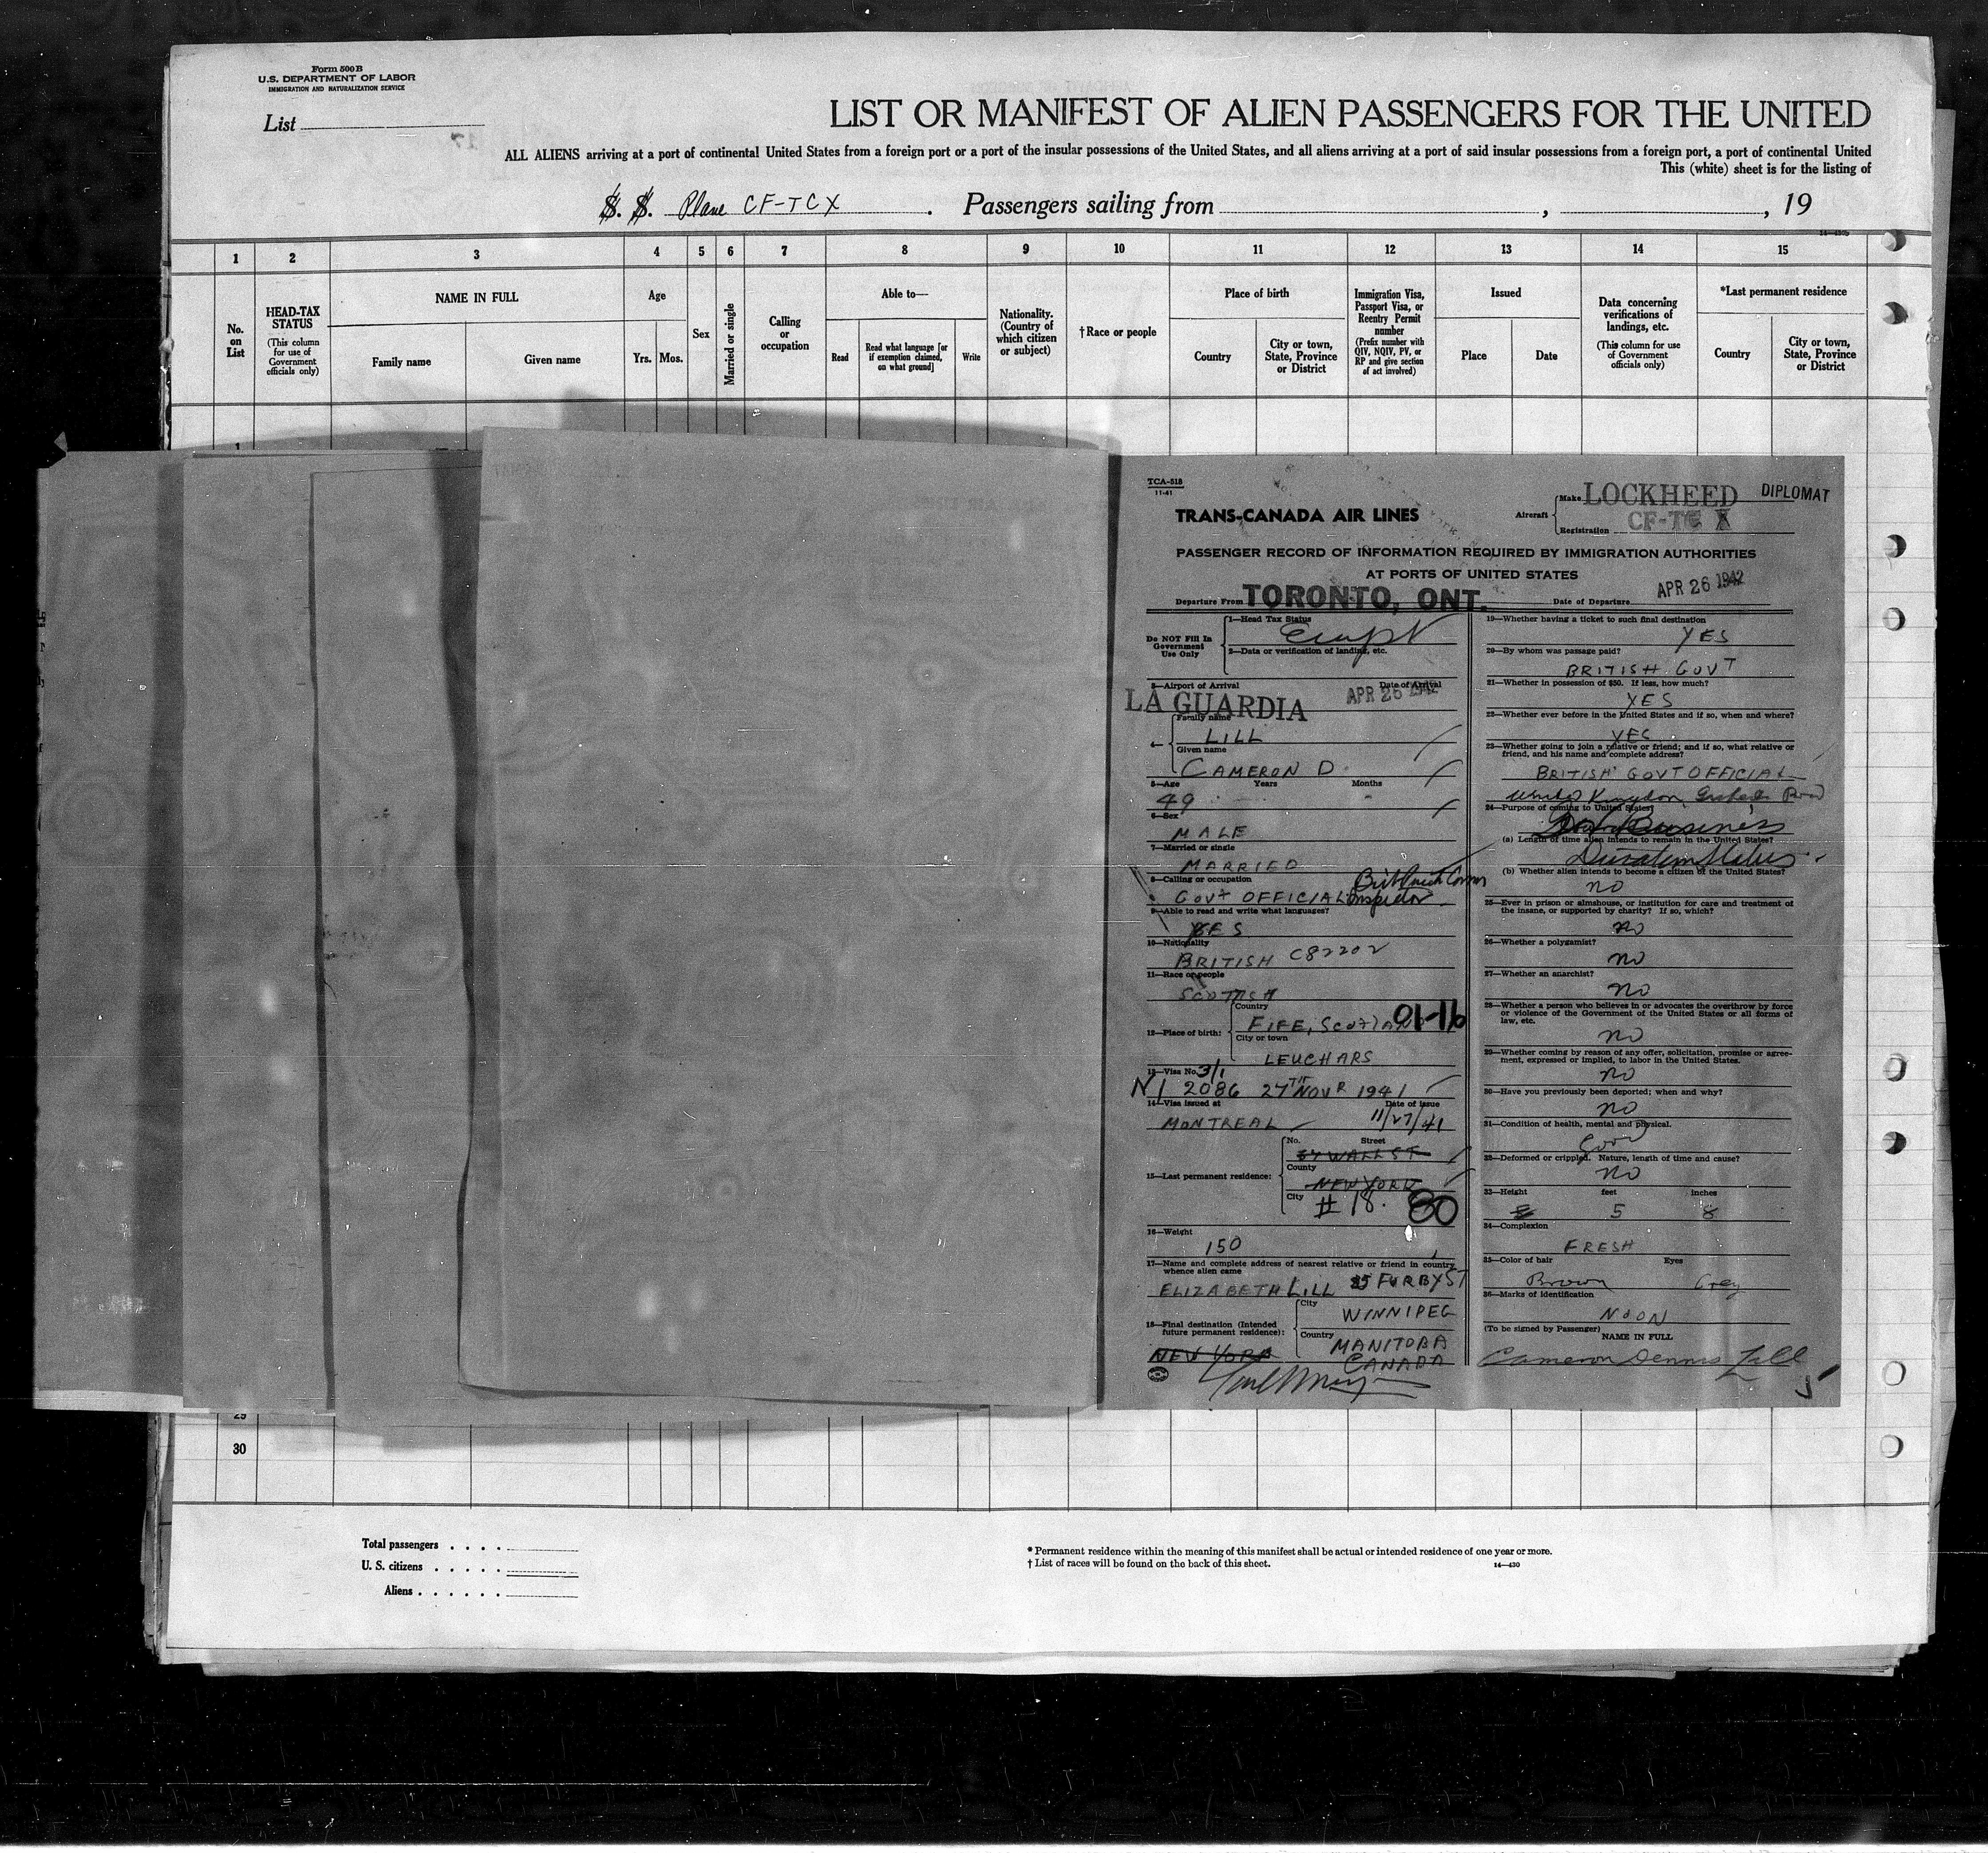 Form 500B
U.S. DEPARTMENT OF LABOR
IMMIGRATION AND NATURALIZATION SERVICE
List
LIST OR MANIFEST OF ALIEN PASSENGERS FOR THE UNITED
ALL ALIENS arriving at a port of continental United States from a foreign port or a port of the insular possessions of the United States, and all aliens arriving at a port of said insular possessions from a foreign port, a port of continental United
This (white) sheet is for the listing of
S. S. Plane CF-TCX. Passengers sailing from , , 19
1 2 3 4 5 6 7 8 9 10 11 12 13 14 15
No. on List
HEAD-TAX STATUS (This column for use of Government officials only)
NAME IN FULL
Family name
Given name
Age
Yrs. Mos.
Sex
Married or single
Calling or occupation
Able to—
Read
Read what language [or if exemption claimed, on what ground]
Write
Nationality. (Country of which citizen or subject)
†Race or people
Place of birth
Country
City or town, State, Province or District
Immigration Visa, Passport Visa, or Reentry Permit number (Prefix number with QIV, NQIV, PV, or RP and give section of act involved)
Issued
Place
Date
Data concerning verifications of landings, etc. (This column for use of Government officials only)
*Last permanent residence
Country
City or town, State, Province or District
1
TCA-518
11-41
TRANS-CANADA AIR LINES
Aircraft
Make LOCKHEED DIPLOMAT
Registration CF-TC X
PASSENGER RECORD OF INFORMATION REQUIRED BY IMMIGRATION AUTHORITIES
AT PORTS OF UNITED STATES
Departure From TORONTO, ONT. Date of Departure APR 26 1942
Do NOT Fill In Government Use Only
1—Head Tax Status
2—Data or verification of landing, etc.
3—Airport of Arrival Date of Arrival
LA GUARDIA APR 26 1942
4— Family name
LILL
Given name
CAMERON D.
5—Age Years Months
49
6—Sex
MALE
7—Married or single
MARRIED
8—Calling or occupation
GOVT OFFICIAL Inspector
9—Able to read and write what languages?
YES
10—Nationality
BRITISH C82202
11—Race or people
SCOTTISH
12—Place of birth:
Country
FIFE, SCOTLAND 01-16
City or town
LEUCHARS
13—Visa No. 3/1
N1 2086 27TH NOVR 1941
14—Visa issued at Date of Issue
MONTREAL 11/27/41
15—Last permanent residence:
No. Street
WALL ST
County
NEW YORK
City
# 18. 80
16—Weight
150
17—Name and complete address of nearest relative or friend in country whence alien came
ELIZABETH LILL FURBY ST
City
WINNIPEG
18—Final destination (Intended future permanent residence):
Country MANITOBA
NEW YORK CANADA
19—Whether having a ticket to such final destination
YES
20—By whom was passage paid?
BRITISH GOVT
21—Whether in possession of $50. If less, how much?
YES
22—Whether ever before in the United States and if so, when and where?
YES
23—Whether going to join a relative or friend; and if so, what relative or friend, and his name and complete address?
BRITISH GOVT OFFICIAL
United Kingdom
24—Purpose of coming to United States?
Business
(a) Length of time alien intends to remain in the United States?
Duration Status
(b) Whether alien intends to become a citizen of the United States?
no
25—Ever in prison or almshouse, or institution for care and treatment of the insane, or supported by charity? If so, which?
no
26—Whether a polygamist?
no
27—Whether an anarchist?
no
28—Whether a person who believes in or advocates the overthrow by force or violence of the Government of the United States or all forms of law, etc.
no
29—Whether coming by reason of any offer, solicitation, promise or agreement, expressed or implied, to labor in the United States.
no
30—Have you previously been deported; when and why?
no
31—Condition of health, mental and physical.
Good
32—Deformed or crippled. Nature, length of time and cause?
no
33—Height feet inches
5 8
34—Complexion
FRESH
35—Color of hair Eyes
Brown Grey
36—Marks of identification
NOON
(To be signed by Passenger) NAME IN FULL
Cameron Dennis Lill
29
30
Total passengers . . . .
U. S. citizens . . . . .
Aliens . . . . . .
* Permanent residence within the meaning of this manifest shall be actual or intended residence of one year or more.
† List of races will be found on the back of this sheet. 14—430